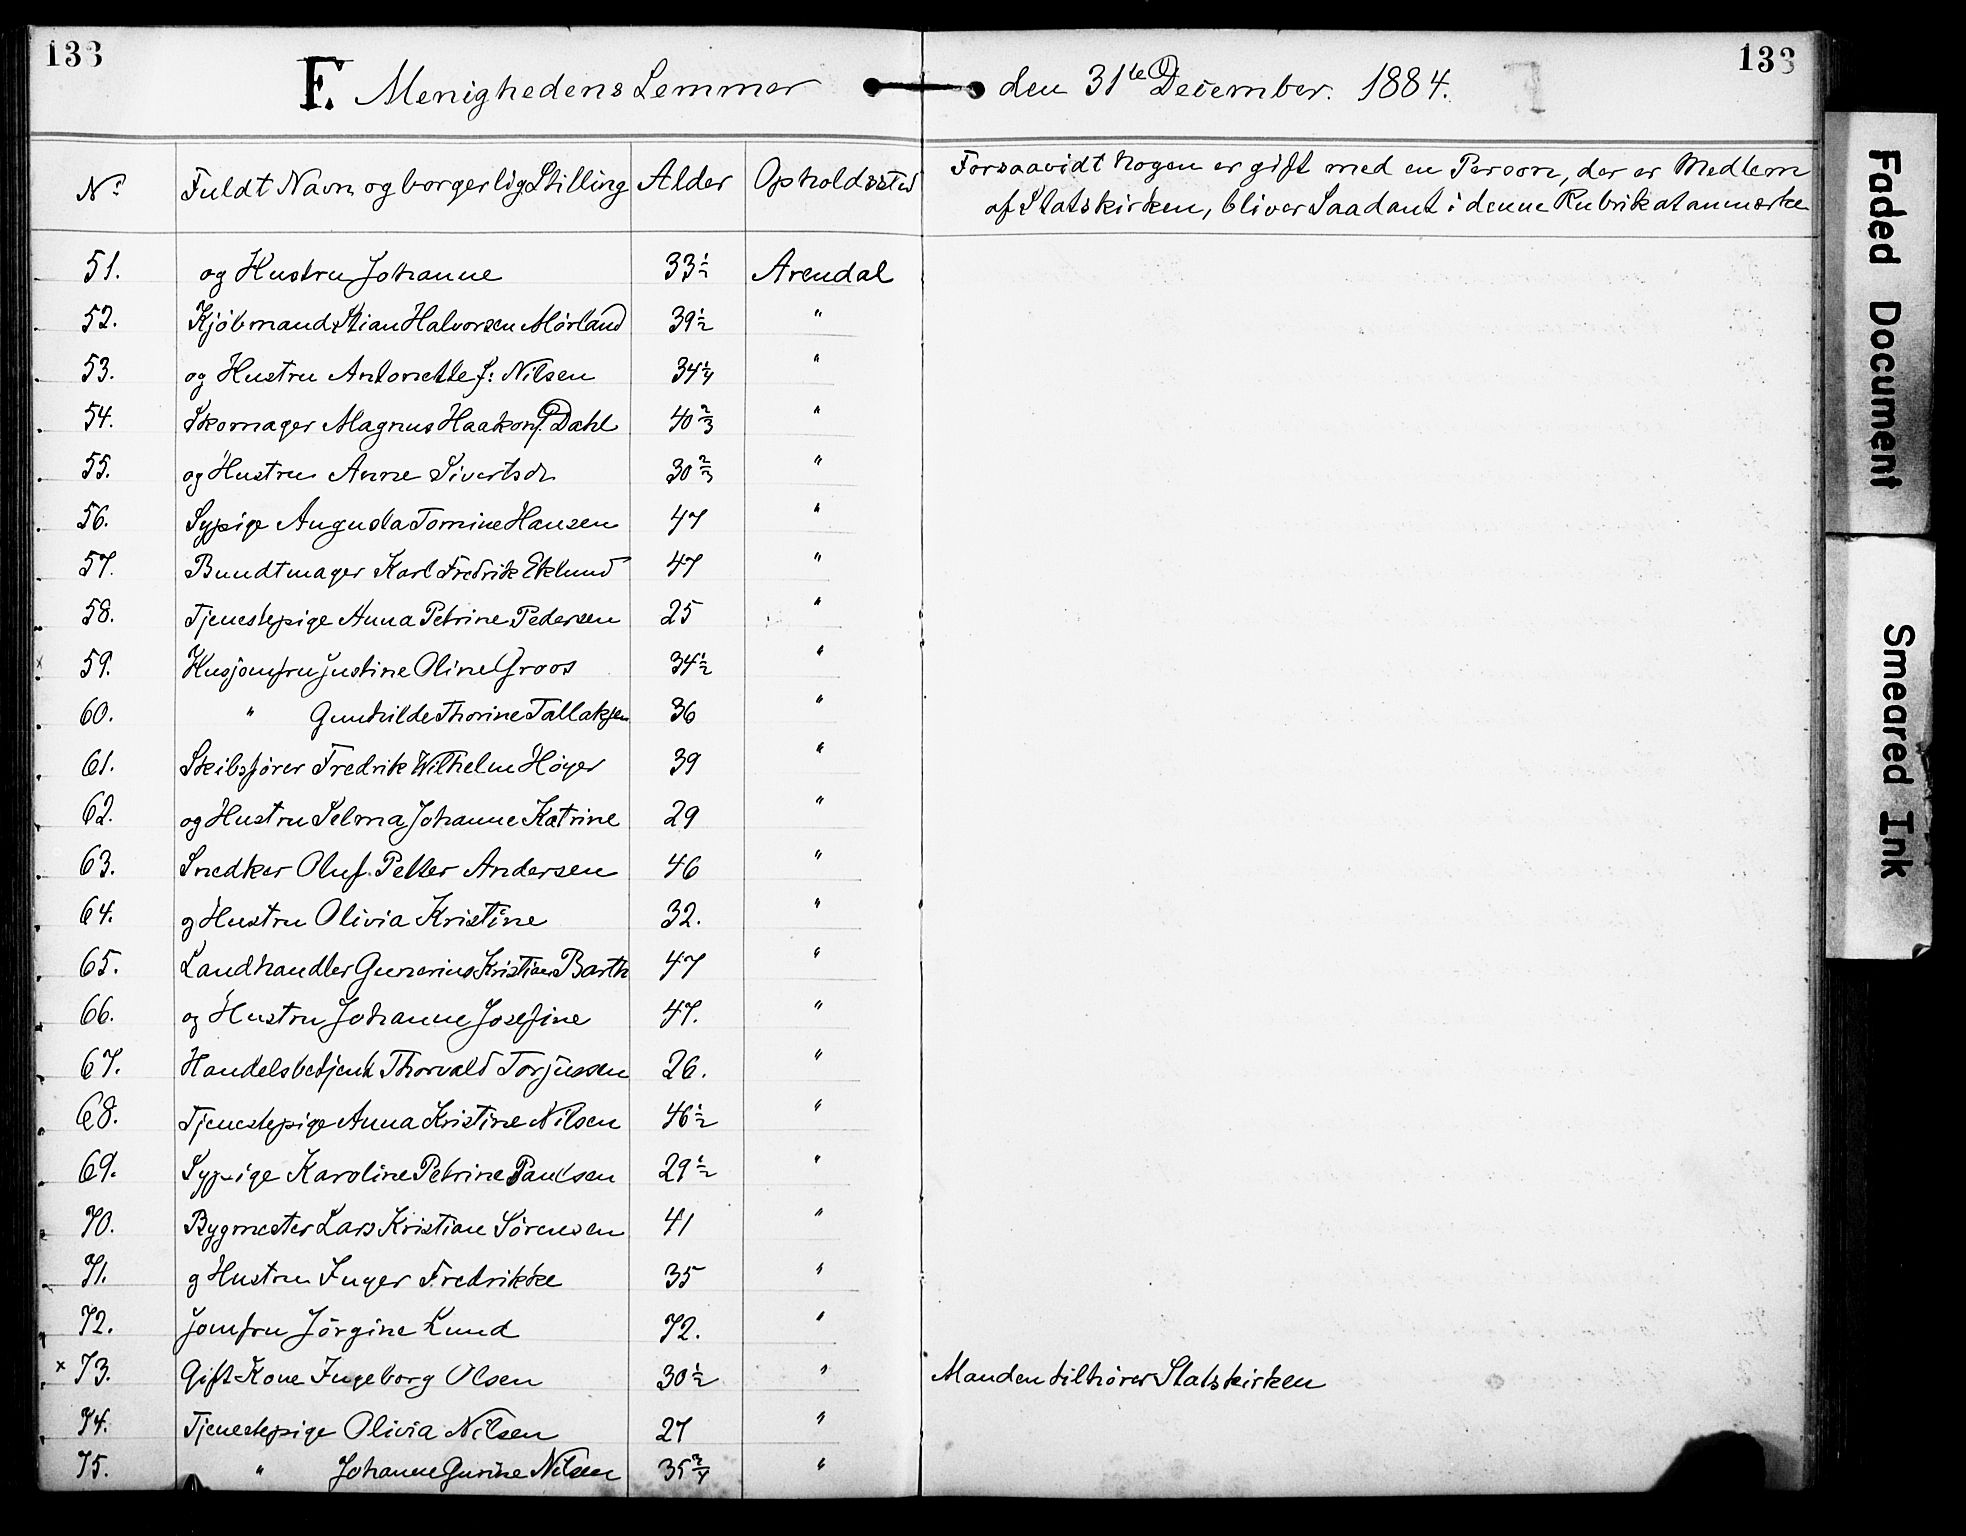 133
133
F. Menighedens Lemmer den 31te December. 1884.
No Fuldt Navn og borgerlig Stilling Alder Opholdssted Forsaavidt Nogen er gift med en Person, der er Medlem
af Statskirken, bliver Saadant i denne Rubrik at anmerke
51. og Hustru Johanne 33½ Arendal
52. Kjöbmand Stian Halvorsen Mörland 39½ "
53. og Hustru Antonette f: Nilsen 34¼ "
54. Skomager Magnus Haakon P. Dahl 40⅔ "
55. og Hustru Anne Sivertsdr 30⅔ "
56. Sypige Augusta Tomine Hansen 47 "
57. Bundtmager Karl Fredrik Eklund 47 "
58. Tjenestepige Anna Petrine Pedersen 25 "
59. Husjomfru Justine Oline Groos 34½ "
60. " Gunhilde Thorine Tallaksen 36 "
61. Skibsförer Fredrik Wilhelm Höyer 39 "
62. og Hustru Selma Johanne Katrine 29 "
63. Snedker Oluf Petter Andersen 46 "
64. og Hustru Olivia Kristine 32. "
65. Landhandler Gunerius Kristian Barth 47 "
66. og Hustru Johanne Josefine 47. "
67. Handelsbetjent Thorvald Torjussen 26. "
68. Tjenestepige Anna Kristine Nilsen 46½ "
69. Sypige Karoline Petrine Paulsen 29½ "
70. Bygmester Lars Kristian Sörensen 41 "
71. og Hustru Inger Fredrikke 35 "
72. Jomfru Jörgine Lund 72. "
x 73. Gift Kone Ingeborg Olsen 30½ " Manden tilhörer Statskirken
74. Tjenestepige Olivia Nilsen 27 "
75. " Johanne Gurine Nilsen 35¾ "
Faded Document
Smeared Ink